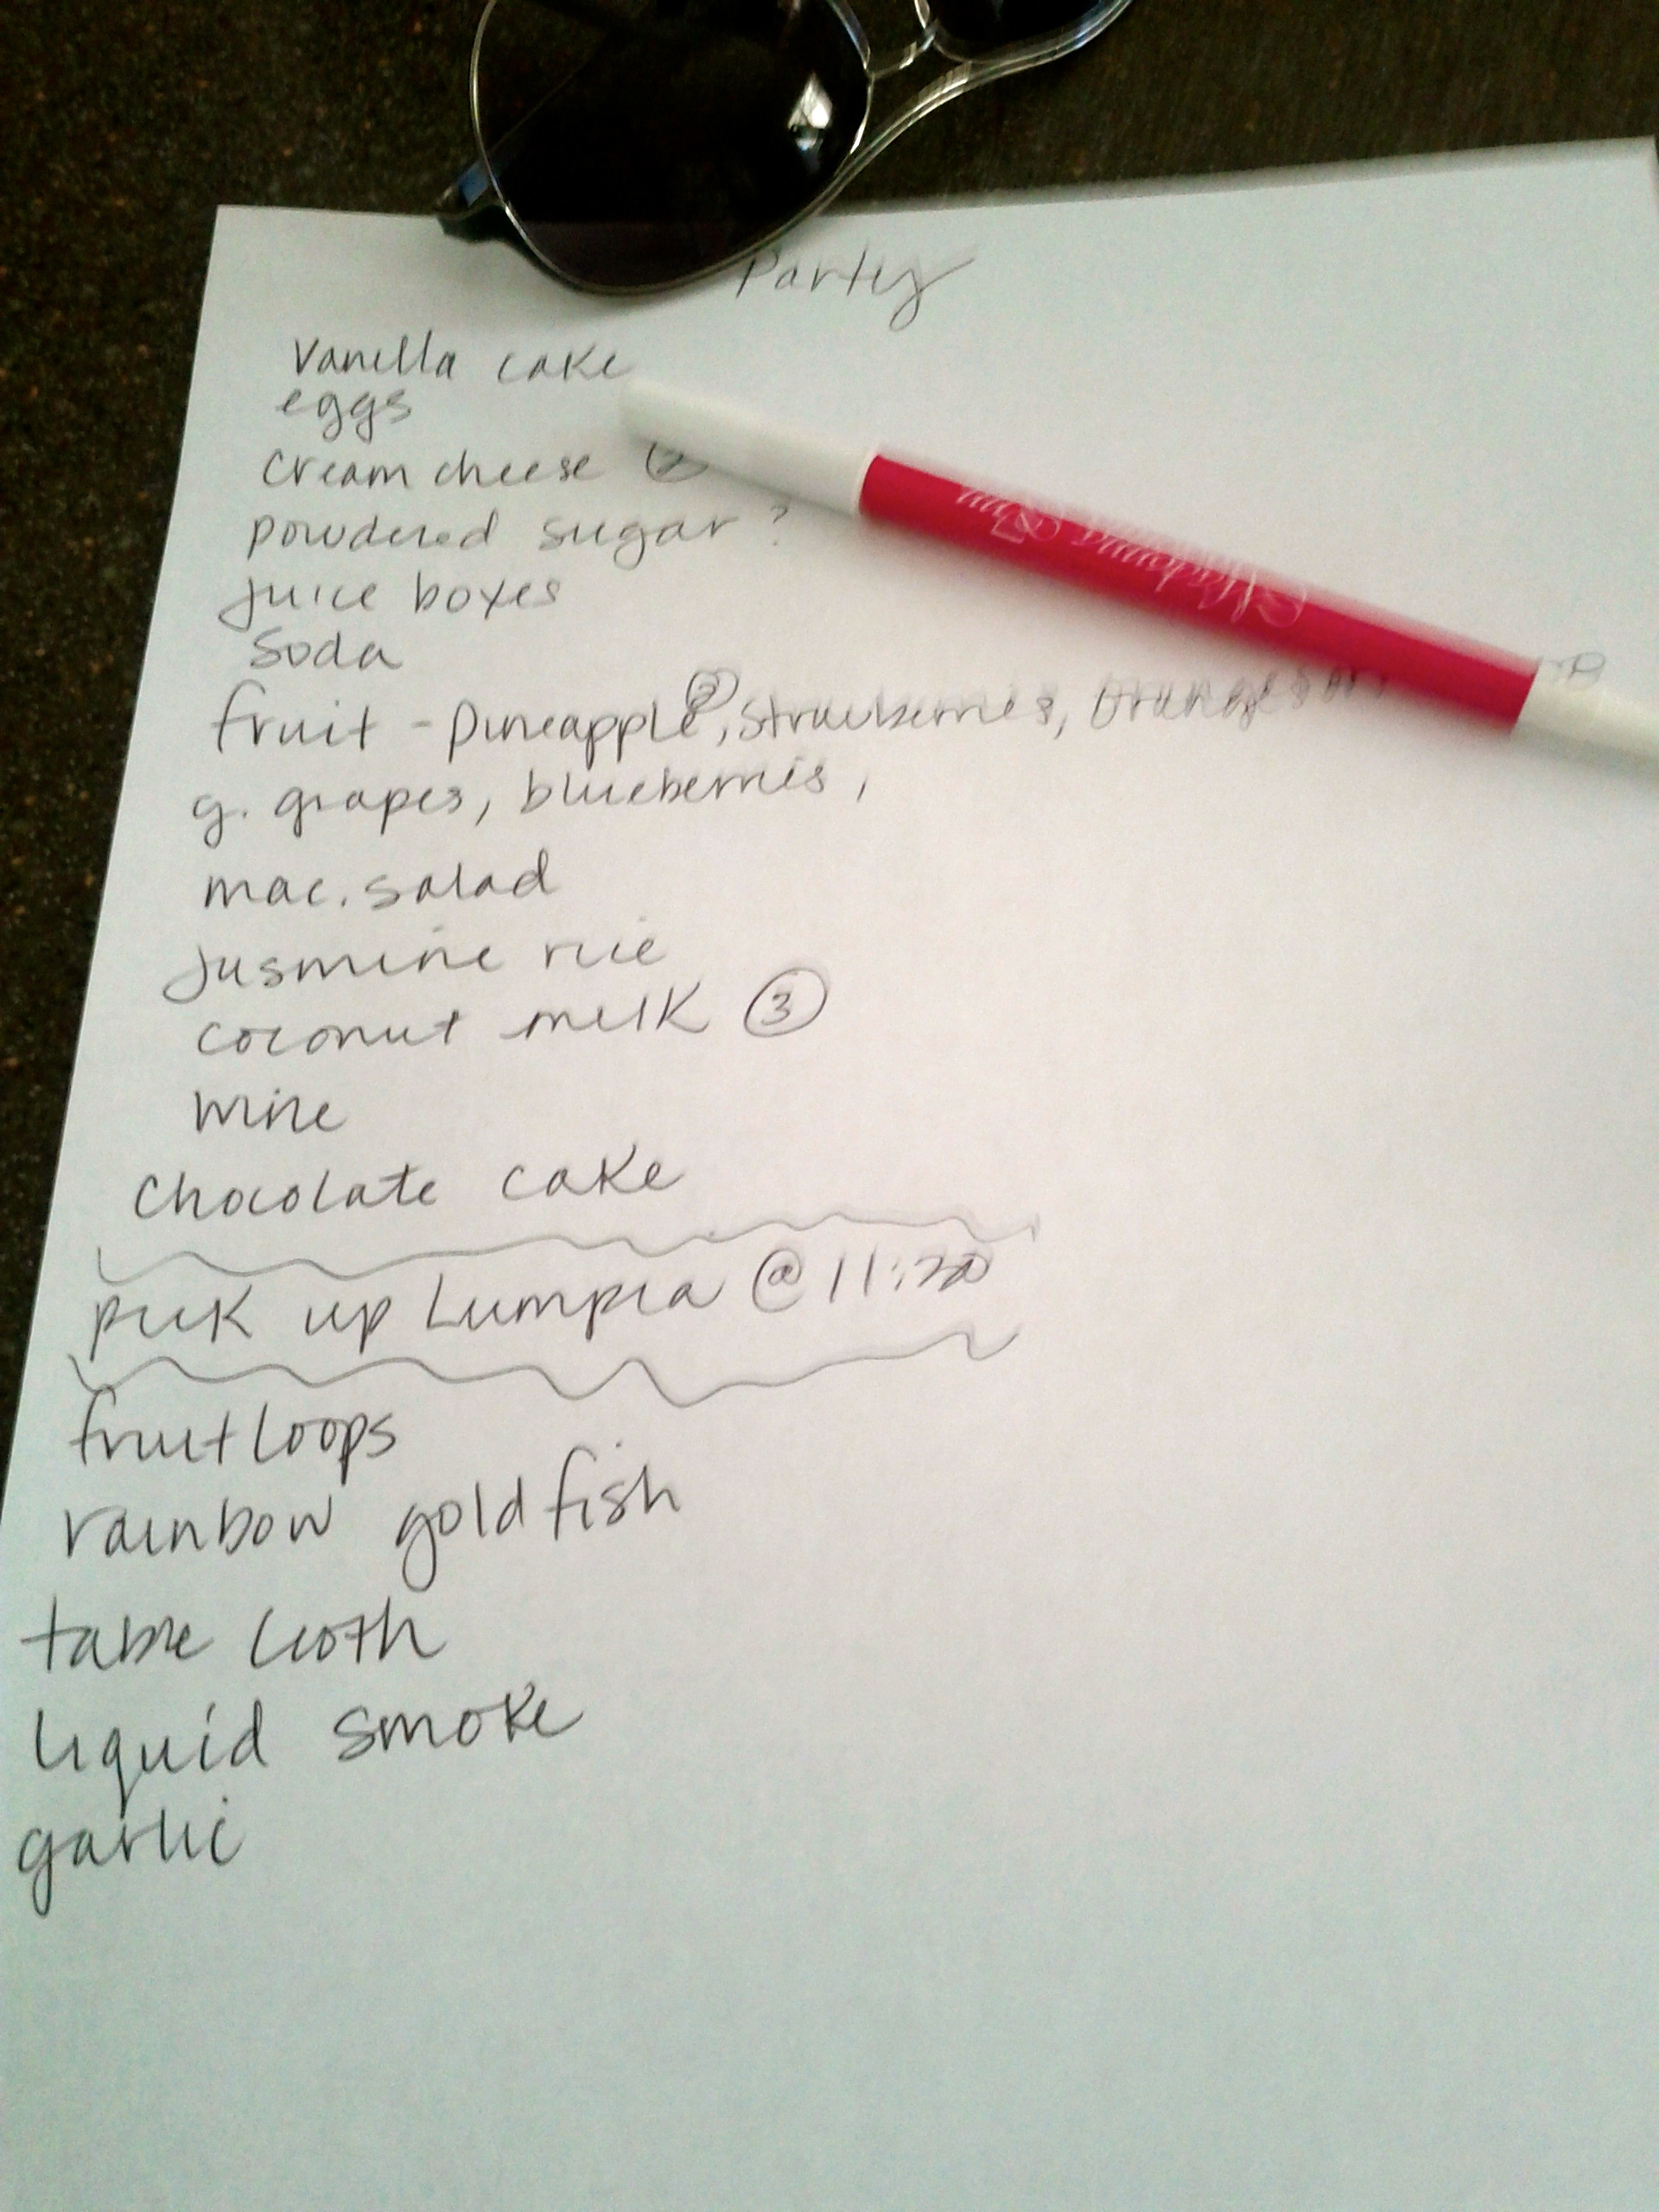 Party
Vanilla cake
eggs
cream cheese
powdered sugar ?
juice boxes
Soda
fruit - pineapple ②, strawberries, oranges
g. grapes, blueberries,
mac. salad
jasmine rice
coconut milk ③
wine
chocolate cake
pick up Lumpia @ 11:30
fruit loops
rainbow goldfish
table cloth
liquid smoke
garlic